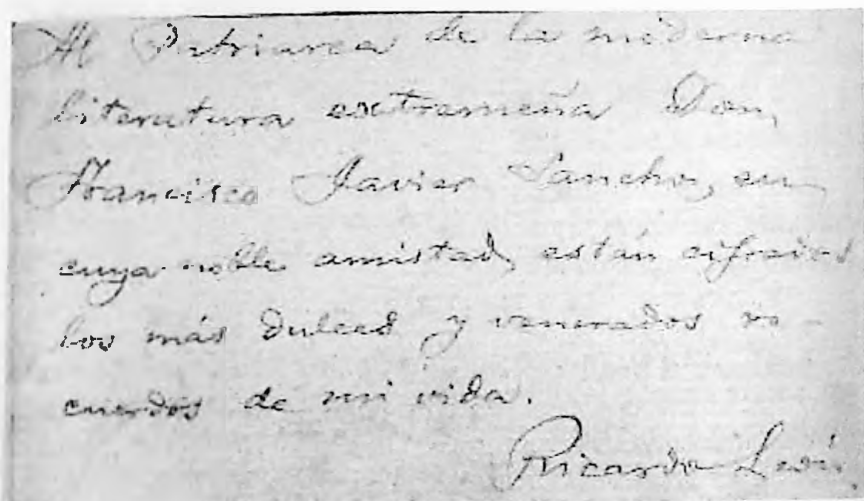 Al Patriarca de la moderna
literatura extremeña Don
Francisco Javier Sancho, en
cuya noble amistad, están cifrados
los más dulces y venerados re-
cuerdos de mi vida.
Ricardo